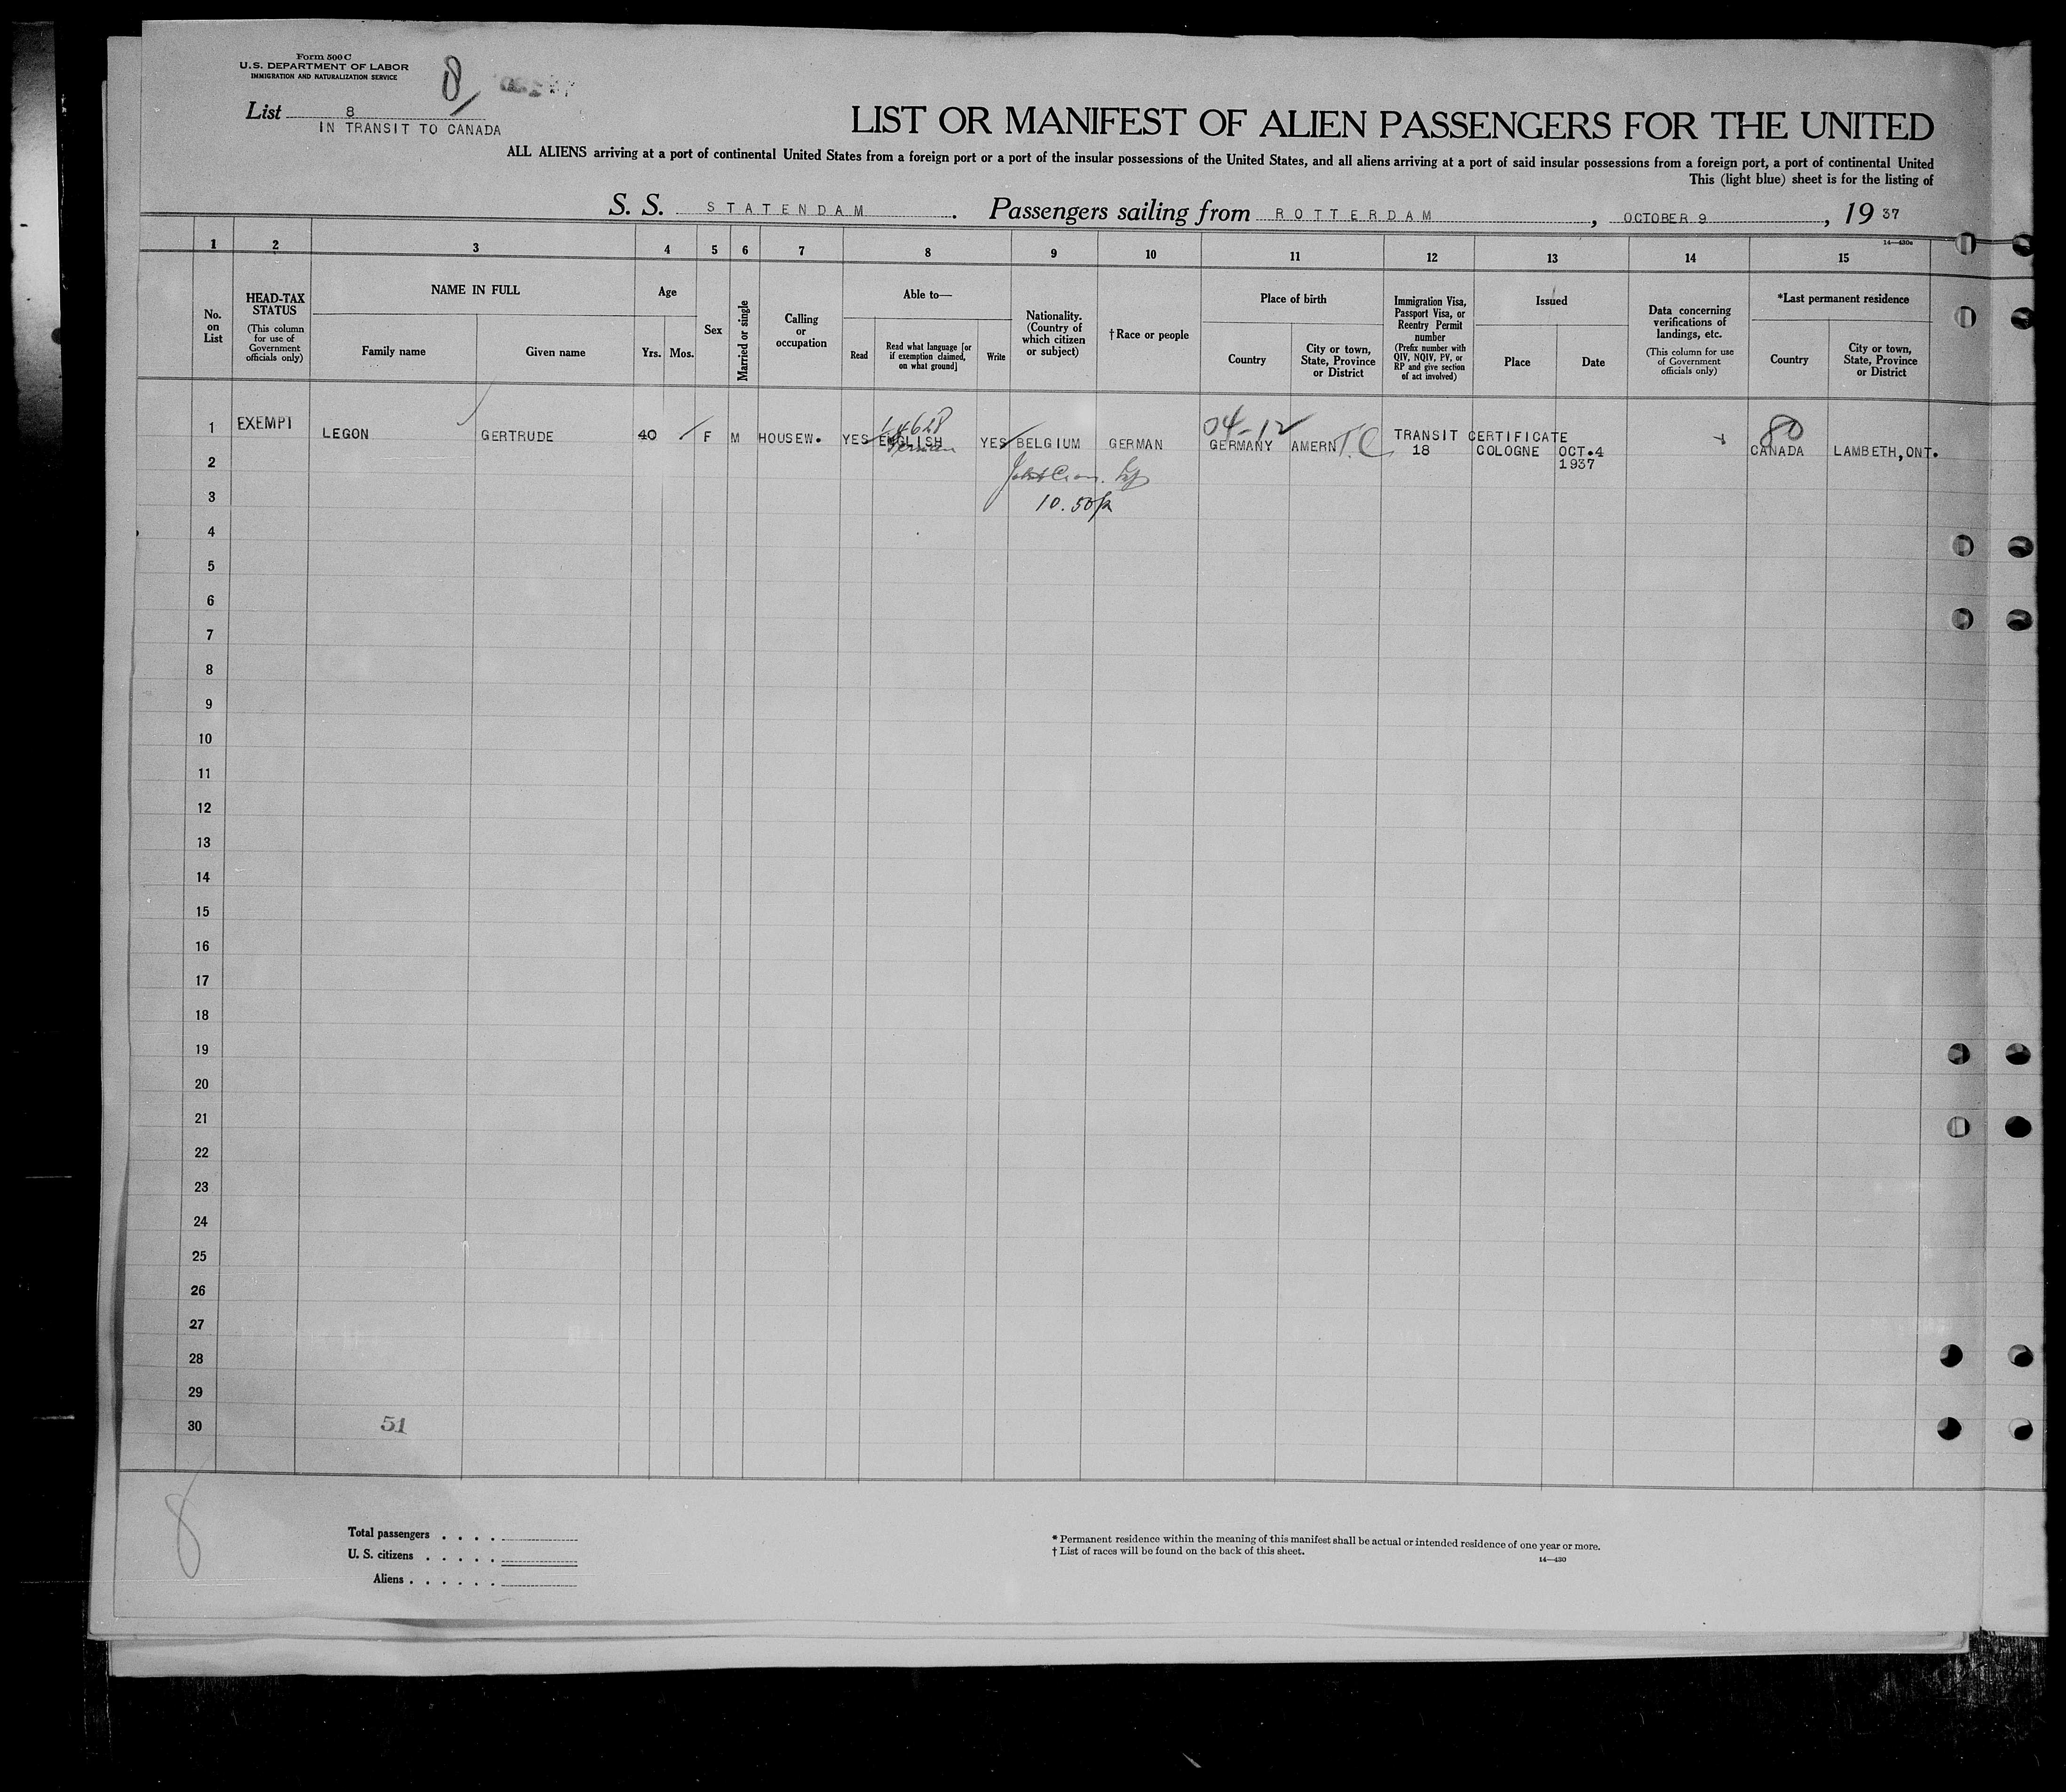 Form 500 C
U.S. DEPARTMENT OF LABOR
IMMIGRATION AND NATURALIZATION SERVICE
8
List 8
IN TRANSIT TO CANADA
LIST OR MANIFEST OF ALIEN PASSENGERS FOR THE UNITED
ALL ALIENS arriving at a port of continental United States from a foreign port or a port of the insular possessions of the United States, and all aliens arriving at a port of said insular possessions from a foreign port, a port of continental United
This (light blue) sheet is for the listing of
S. S. STATENDAM. Passengers sailing from ROTTERDAM, OCTOBER 9, 19 37
14—430a
1 2 3 4 5 6 7 8 9 10 11 12 13 14 15
No. on List
HEAD-TAX STATUS
(This column for use of Government officials only)
NAME IN FULL
Family name
Given name
Age
Yrs. Mos.
Sex
Married or single
Calling or occupation
Able to—
Read
Read what language [or if exemption claimed, on what ground]
Write
Nationality. (Country of which citizen or subject)
† Race or people
Place of birth
Country
City or town, State, Province or District
Immigration Visa, Passport Visa, or Reentry Permit number
(Prefix number with QIV, NQIV, PV, or RP and give section of act involved)
Issued
Place
Date
Data concerning verifications of landings, etc.
(This column for use of Government officials only)
*Last permanent residence
Country
City or town, State, Province or District
04-12 80
1 EXEMPT LEGON GERTRUDE 40 F M HOUSEW. YES ENGLISH German YES BELGIUM GERMAN GERMANY AMERN T.C. TRANSIT CERTIFICATE
18 COLOGNE OCT.4 CANADA LAMBETH,ONT.
1937
2
3
10.50
4
5
6
7
8
9
10
11
12
13
14
15
16
17
18
19
20
21
22
23
24
25
26
27
28
29
30 51
8
Total passengers . . . .
U. S. citizens . . . . .
Aliens . . . . . .
* Permanent residence within the meaning of this manifest shall be actual or intended residence of one year or more.
† List of races will be found on the back of this sheet.
14—430